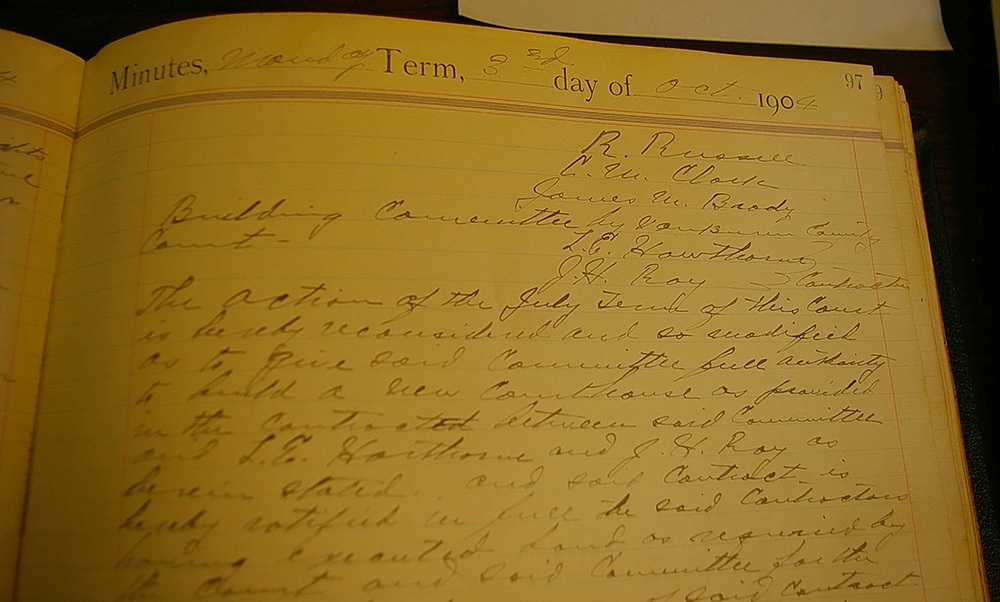 Minutes, Monday Term, 3rd day of Oct. 1904
97
9
R. Russell
C. M. Clark
James M. Brady
Building Committee by VanBuren County
Court -
L. E. Hawthorne
J. H. Roy Contractors
The action of the July Term of this Court
is hereby reconsidered and so modified
as to give said Committee full authority
to build a new Courthouse as provided
in the contracted between said Committee
and L. E. Hawthorne and J. H. Roy as
herein stated. and said Contract is
hereby ratified in full the said Contractors
having executed bond as required by
the Court and said Committee for the
of said Contract